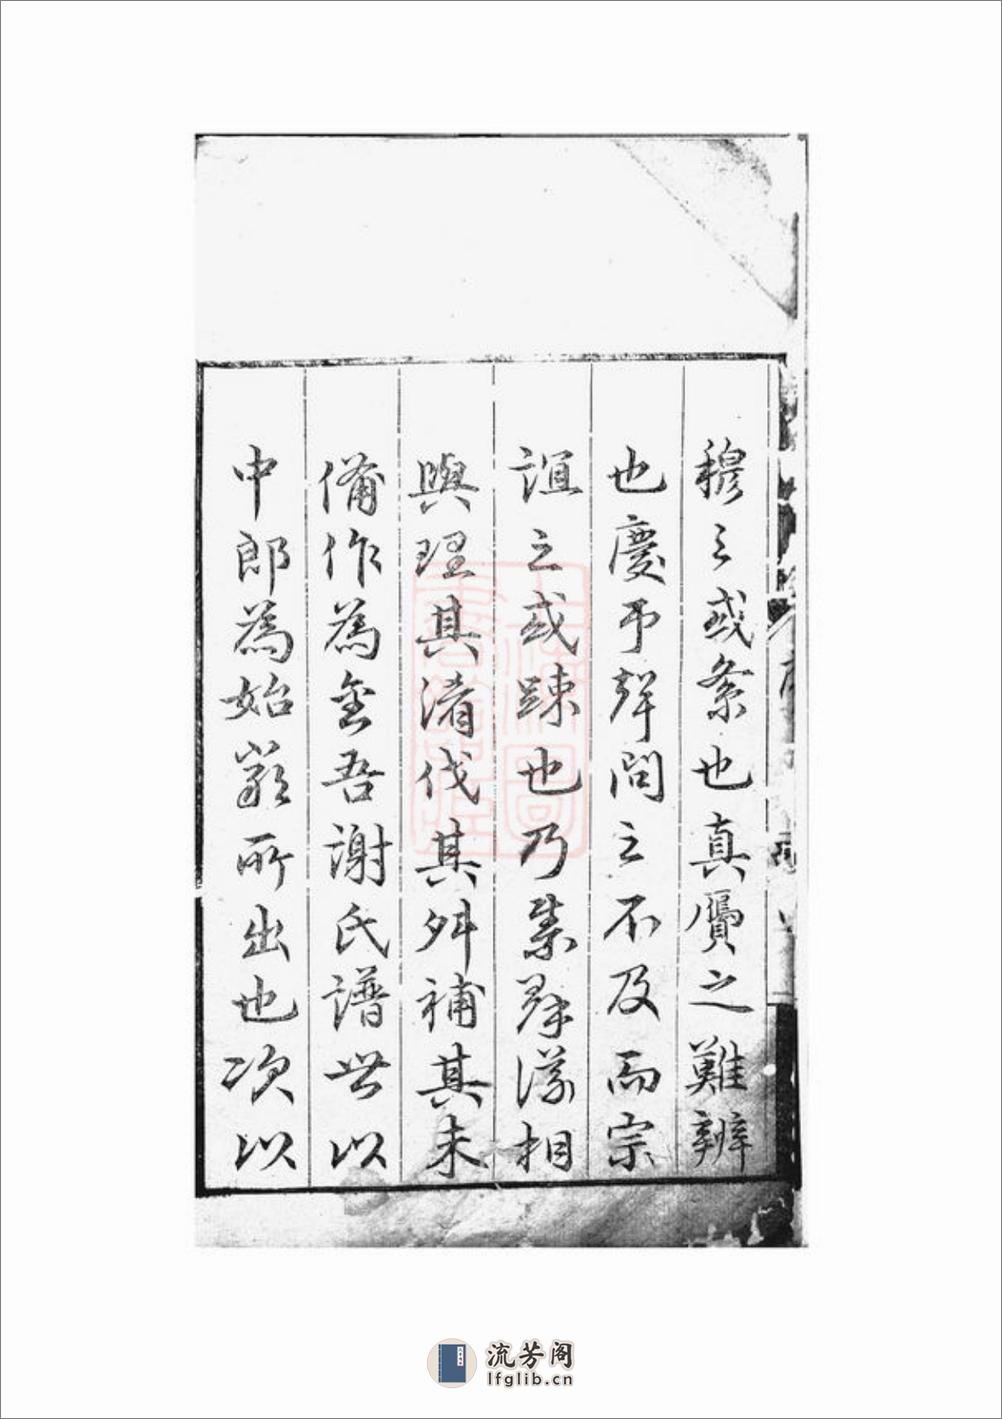 穆之或紊也真贋之難辨
也慶弔聲問之不及而宗
誼之或踈也乃集群議相
與理其淆伐其舛補其未
備作為金吾謝氏譜世以
中郎為始嚴所出也次以
流芳阁
lfglib.cn